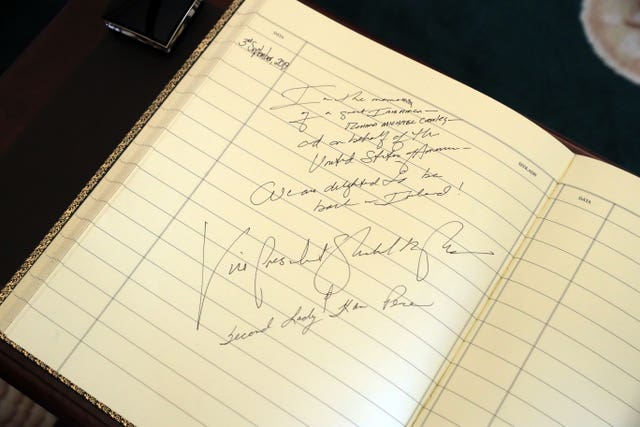 DATA
3rd September, 2019
In the memory
of a great Irishman –
Richard Michael Cawley –
and on behalf of the
United States of America –
We are delighted to be
back in Ireland!
Vice President Michael R. Pence
Second Lady Karen Pence
SÍNIÚ
DATA